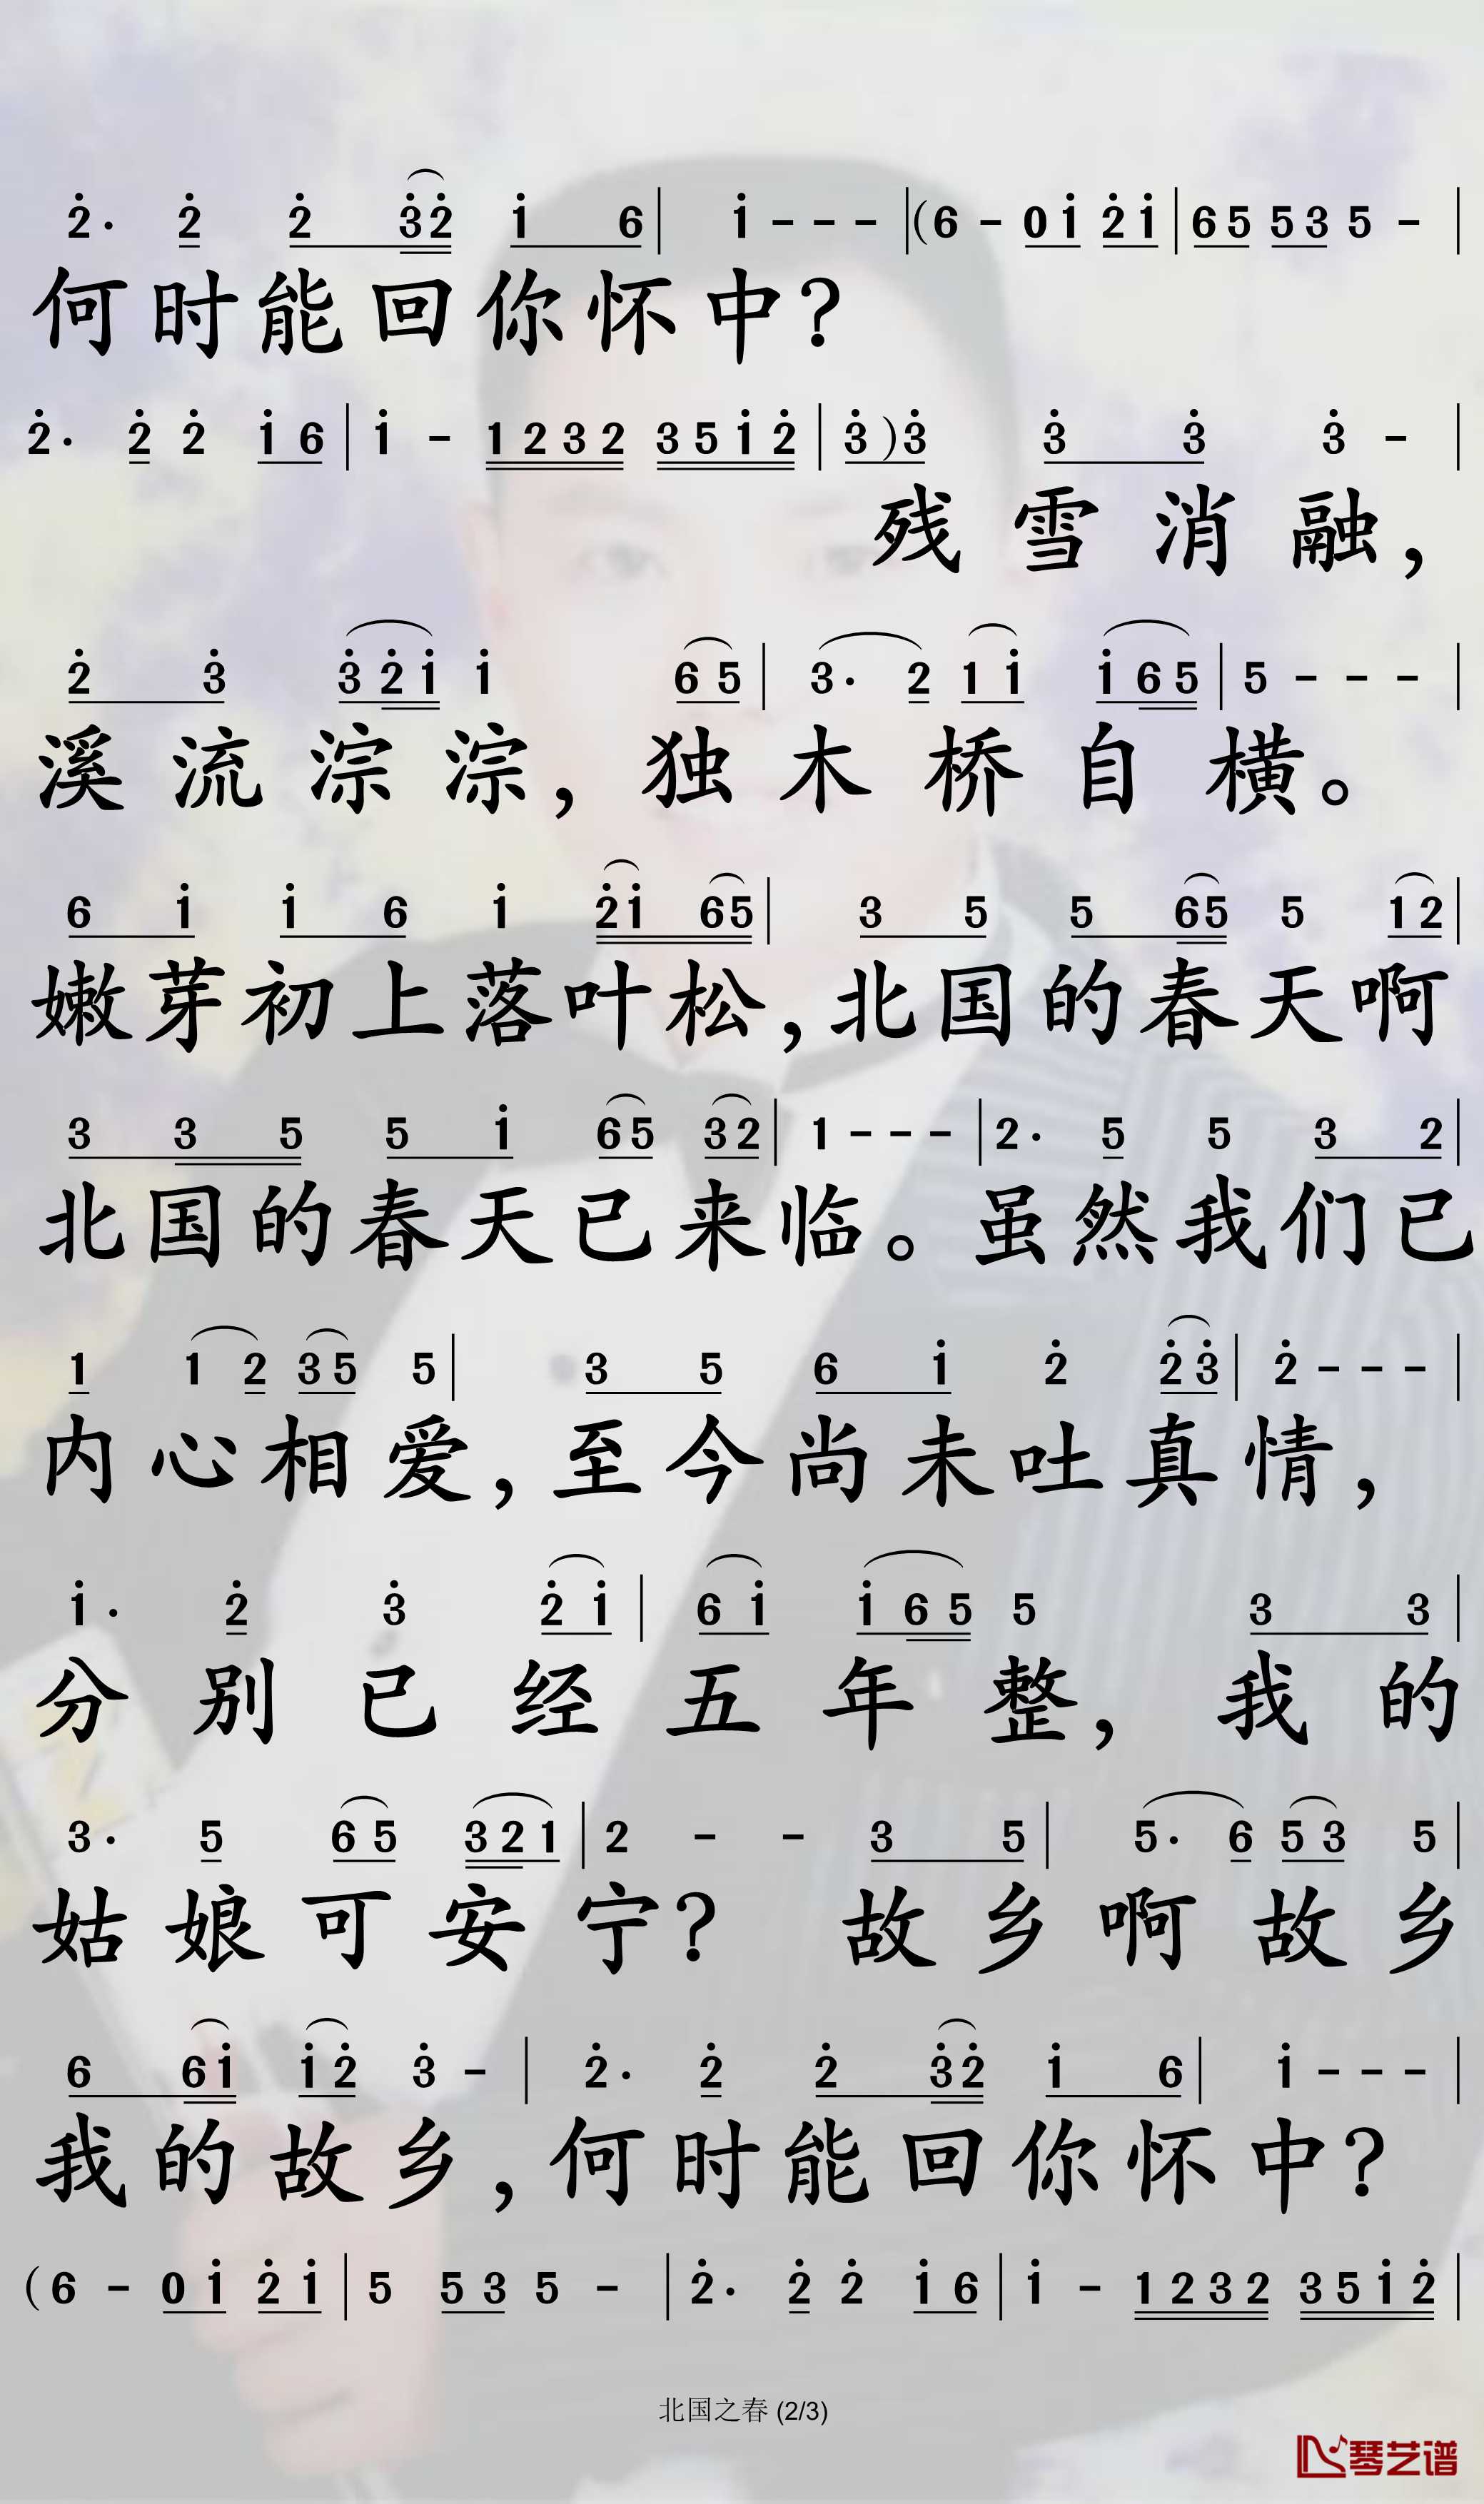 2̇· 2̇ 2̇ 3̇2̇ 1̇ 6 | 1̇ - - - | (6 - 0 1̇ 2̇ 1̇ | 6 5 5 3 5 - |
何时能回你怀中?
2̇· 2̇ 2̇ 1̇ 6 | 1̇ - 1 2 3 2 3 5 1̇ 2̇ | 3̇ ) 3̇ 3̇ 3̇ 3̇ - |
残雪消融,
2̇ 3̇ 3̇ 2̇ 1̇ 1̇ 6 5 | 3· 2 1 1̇ 1̇ 6 5 | 5 - - - |
溪流淙淙,独木桥自横。
6 1̇ 1̇ 6 1̇ 2̇1̇ 65 | 3 5 5 65 5 1 2 |
嫩芽初上落叶松,北国的春天啊
3 3 5 5 1̇ 6 5 3 2 | 1 - - - | 2· 5 5 3 2 |
北国的春天已来临。虽然我们已
1 1 2 3 5 5 | 3 5 6 1̇ 2̇ 2̇ 3̇ | 2̇ - - - |
内心相爱,至今尚未吐真情,
1̇· 2̇ 3̇ 2̇ 1̇ | 6 1̇ 1̇ 6 5 5 3 3 |
分别已经五年整,我的
3· 5 6 5 3 2 1 | 2 - - 3 5 | 5· 6 5 3 5 |
姑娘可安宁?故乡啊故乡
6 6 1̇ 1̇ 2̇ 3̇ - | 2̇· 2̇ 2̇ 3̇2̇ 1̇ 6 | 1̇ - - - |
我的故乡,何时能回你怀中?
(6 - 0 1̇ 2̇ 1̇ | 5 5 3 5 - | 2̇· 2̇ 2̇ 1̇ 6 | 1̇ - 1 2 3 2 3 5 1̇ 2̇ |
北国之春 (2/3)
琴艺谱